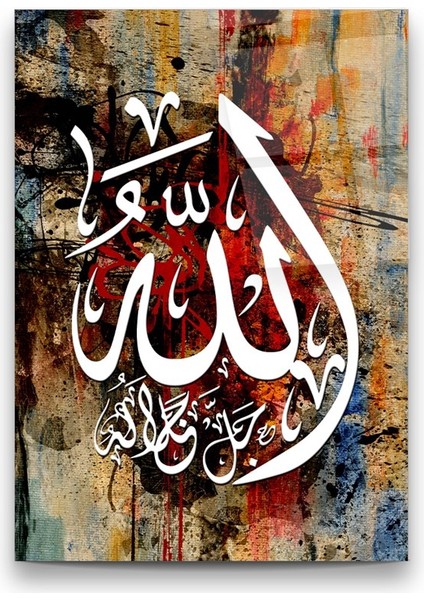 الله
جَلَّ جَلَالُهُ